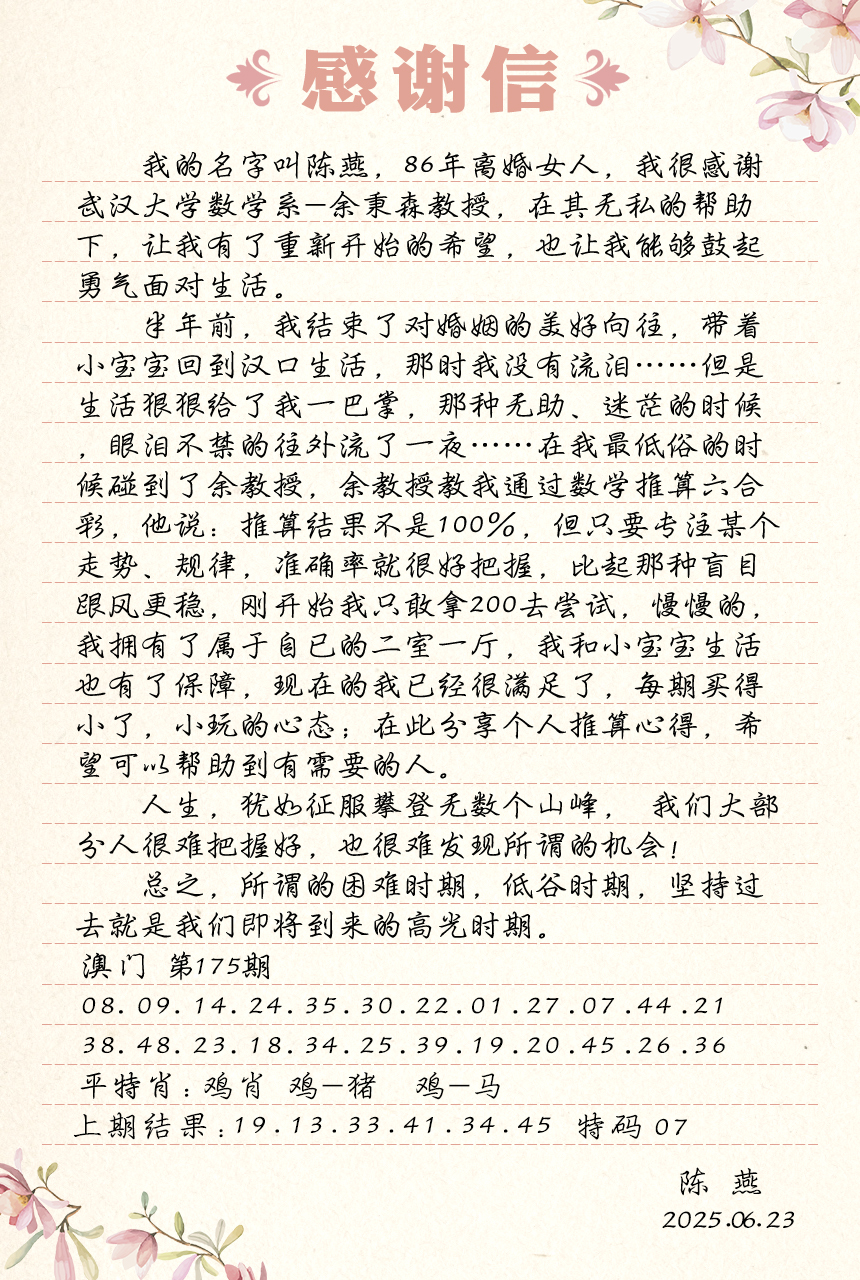 感谢信
我的名字叫陈燕，86年离婚女人，我很感谢
武汉大学数学系-余秉森教授，在其无私的帮助
下，让我有了重新开始的希望，也让我能够鼓起
勇气面对生活。
半年前，我结束了对婚姻的美好向往，带着
小宝宝回到汉口生活，那时我没有流泪……但是
生活狠狠给了我一巴掌，那种无助、迷茫的时候
，眼泪不禁的往外流了一夜……在我最低俗的时
候碰到了余教授，余教授教我通过数学推算六合
彩，他说：推算结果不是100%，但只要专注某个
走势、规律，准确率就很好把握，比起那种盲目
跟风更稳，刚开始我只敢拿200去尝试，慢慢的，
我拥有了属于自已的二室一厅，我和小宝宝生活
也有了保障，现在的我已经很满足了，每期买得
小了，小玩的心态；在此分享个人推算心得，希
望可以帮助到有需要的人。
人生，犹如征服攀登无数个山峰， 我们大部
分人很难把握好，也很难发现所谓的机会！
总之，所谓的困难时期，低谷时期，坚持过
去就是我们即将到来的高光时期。
澳门 第175期
08.09.14.24.35.30.22.01.27.07.44.21
38.48.23.18.34.25.39.19.20.45.26.36
平特肖：鸡肖 鸡-猪 鸡-马
上期结果：19.13.33.41.34.45 特码 07
陈 燕
2025.06.23